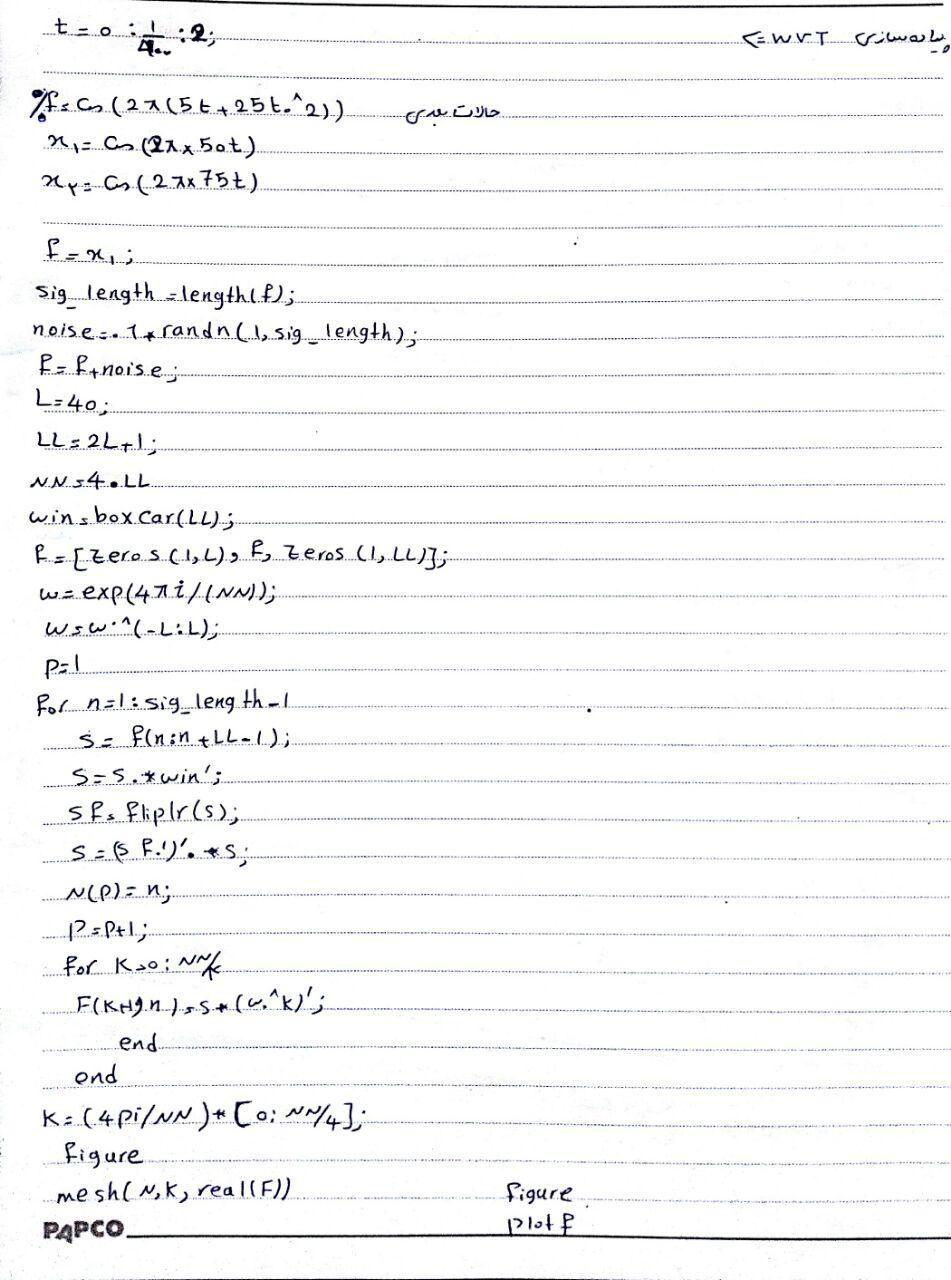 پیاده‌سازی WVT =>
t = 0 : 1/400 : 2;
%f = cos (2π(5t + 25t.^2)) حالات بعدی
x₁ = cos (2π×50t)
x₂ = cos (2π×75t)
f = x₁ ;
sig_length = length(f);
noise = .1*randn(1, sig_length);
f = f+noise;
L=40;
LL = 2L+1;
NN = 4.LL
win = boxcar(LL);
f = [zeros(1,L), f, zeros (1, LL)];
w = exp(4πi/(NN));
w = w.^(-L:L);
p=1
for n=1:sig_length-1
s = f(n:n+LL-1);
s=s.*win';
sf = fliplr(s);
s = (sf.')'.*s;
N(p) = n;
p = p+1;
for k=0:NN/4
F(k+1,n) = s*(w.^k)';
end
end
k = (4pi/NN)*[0:NN/4];
figure
mesh(N,k, real(F))
figure
plot f
PAPCO